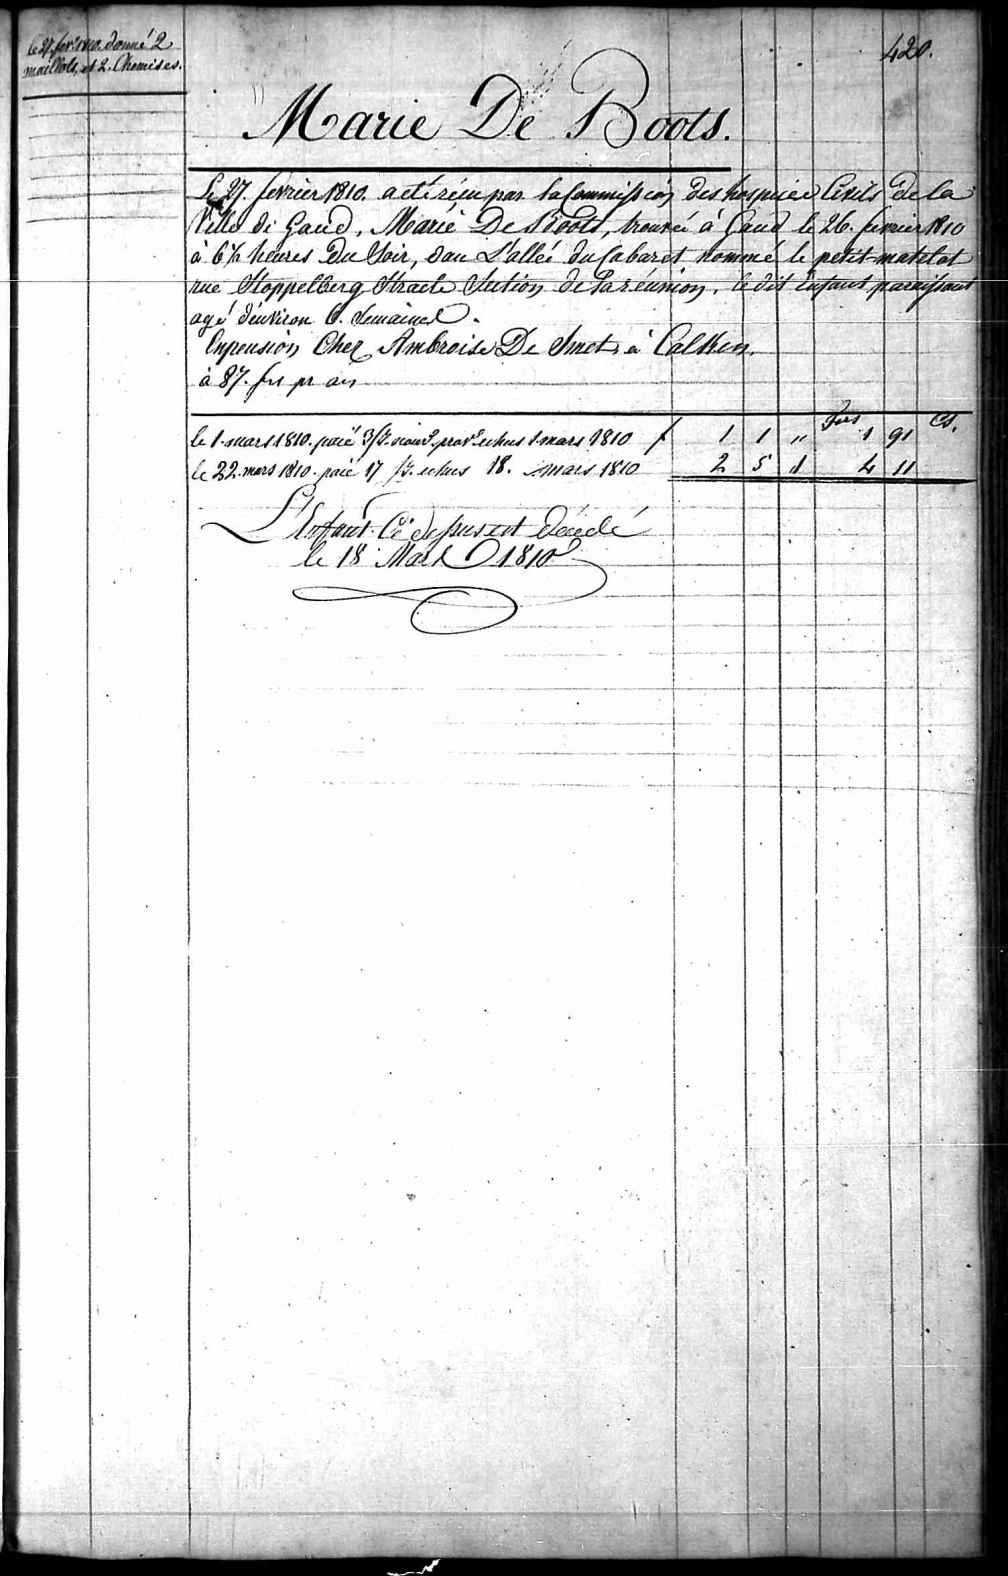 le 27 fevr 1810 donné 2
maillots, et 2. Chemises.
420.
Marie De Boots.
Le 27. fevrier 1810. a eté réçu par la Commission des hospices Civils de la
Ville de Gand, Marie De Boots, trouvée à Gand le 26. fevrier 1810
à 6½ heures Du Soir, dan L'allée du Cabaret nommé le petit-matelot
rue Stoppelberg Straete Section de La réunion. le dit Enfant paraissant
agé d'environ 6. Semaines.
En pension Chez Ambroise De Smet à Calken.
à 87. frs pr an
Frs Cs.
le 1. mars 1810. paié 3/7. échus 1 mars 1810 f 1 1 " 1 91
le 22. mars 1810. paié 17 /7. echus 18. mars 1810 2 5 " 4 11
L'Enfant Ci dessus est décédé
le 18 Mars 1810